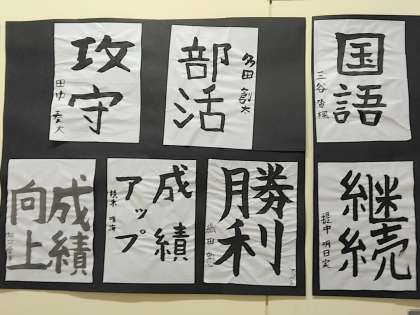 攻守
田中
部活
多田 創太
国語
三谷
成績
向上
成績
アップ
鈴木
勝利
織田
継続
田中 明日実